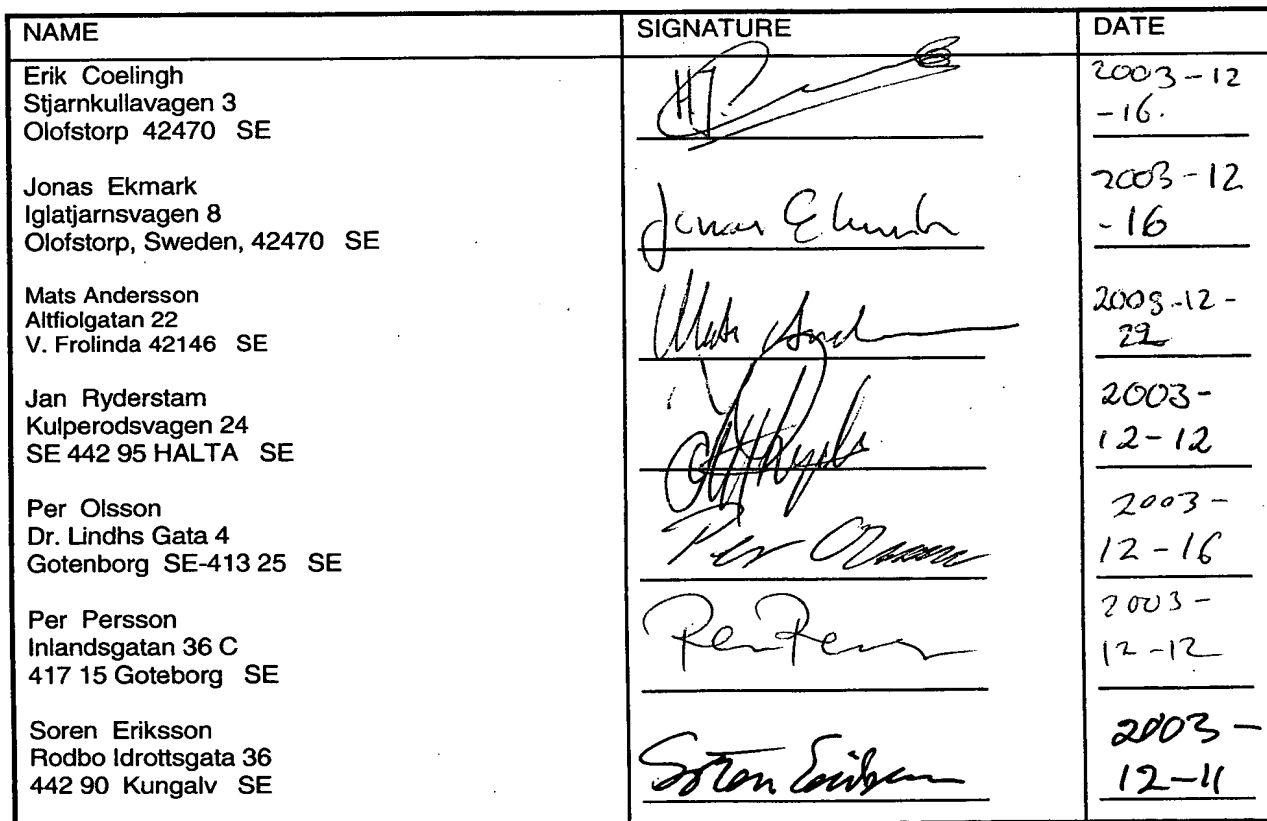 NAME
SIGNATURE
DATE
Erik Coelingh
Stjarnkullavagen 3
Olofstorp 42470 SE
2003-12
-16.
Jonas Ekmark
Iglatjarnsvagen 8
Olofstorp, Sweden, 42470 SE
Jonas Ekmark
2003-12
-16
Mats Andersson
Altfiolgatan 22
V. Frolinda 42146 SE
Mats And
2003-12-
22
Jan Ryderstam
Kulperodsvagen 24
SE 442 95 HALTA SE
2003-
12-12
Per Olsson
Dr. Lindhs Gata 4
Gotenborg SE-413 25 SE
Per Olsson
2003-
12-16
Per Persson
Inlandsgatan 36 C
417 15 Goteborg SE
Per Pers
2003-
12-12
Soren Eriksson
Rodbo Idrottsgata 36
442 90 Kungalv SE
Sören Eriksson
2003-
12-11